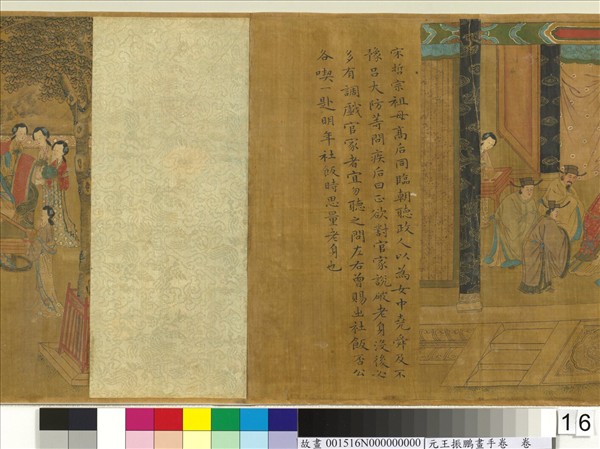 宋哲宗祖母高后同臨朝聽政人以為女中堯舜及不
豫呂大防等問疾后曰正欲對官家說破老身沒後必
多有調戲官家者宜勿聽之問左右曾賜出社飯否公
各喫一匙明年社飯時思量老身也
16
故畫 001516N000000000
元王振鵬畫手卷 卷